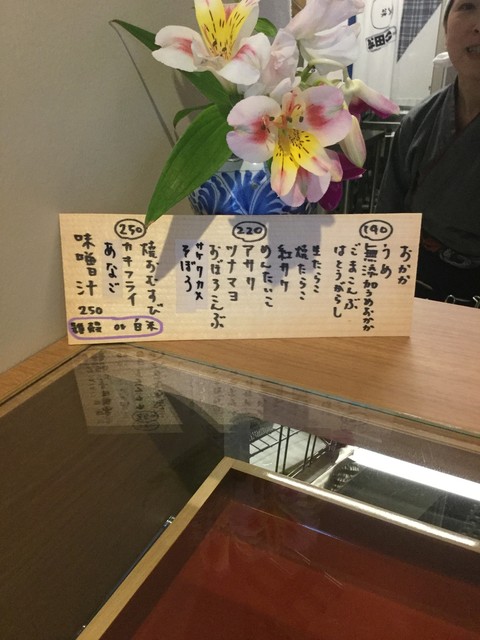 190
おかか
うめ
無添加うめおかか
ごまこんぶ
はとうがらし
220
生たらこ
焼たらこ
紅サケ
めんたいこ
アサリ
ツナマヨ
おぼろこんぶ
サケワカメ
そぼろ
250
焼おむすび
カキフライ
あなご
味噌汁
250
雑穀 or 白米